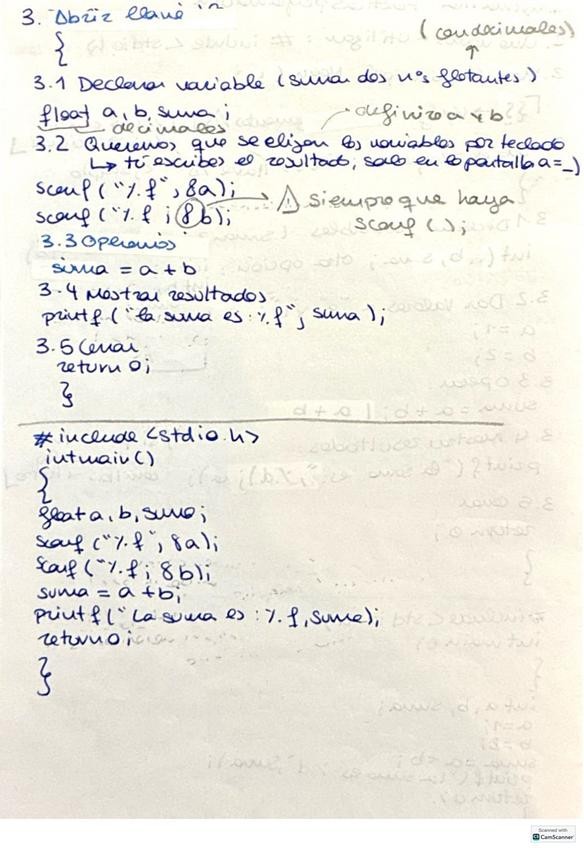 3. Abrir llave
{
(con decimales)
3.1 Declarar variable (suma dos nºs flotantes)
float a, b, suma;
decimales
definir a y b
3.2 Queremos que se elijan las variables por teclado
↳ tú escribes el resultado, sale en la pantalla a=_)
scanf ("%f", &a);
scanf ("%f ; &b); → ⚠ siempre que haya
scanf ();
3.3 Operamos
suma = a + b
3.4 Mostrar resultados
printf ("la suma es: %f", suma);
3.5 Cerrar
return 0;
}
#include <stdio.h>
int main ()
{
float a, b, suma;
scanf ("%f", &a);
scanf ("%f; &b);
suma = a + b;
printf ("La suma es: %f, suma);
return 0;
}
Scanned with
CamScanner